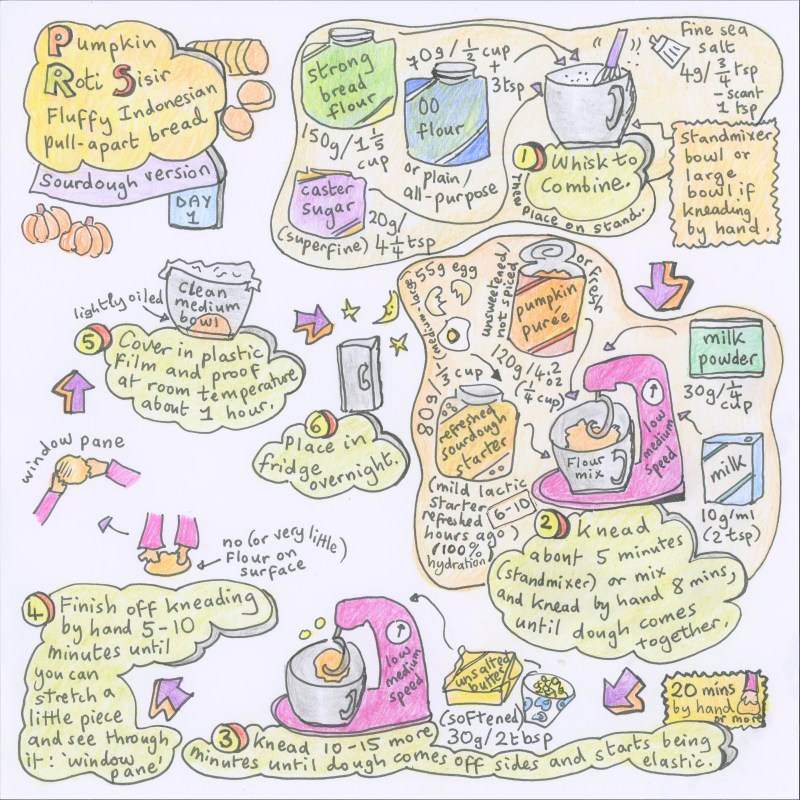 Pumpkin
Roti Sisir
Fluffy Indonesian
pull-apart bread
Sourdough version
DAY
1
strong
bread
flour
150g/1 1/5
cup
70g/1/2 cup
+
3tsp
00
flour
or plain/
all-purpose
caster
sugar
(superfine)
20g/
4 1/4 tsp
Fine sea
salt
4g/3/4 tsp
-scant
1 tsp
1
Whisk to
combine.
Then place on stand.
standmixer
bowl or
large
bowl if
kneading
by hand.
55g egg
(medium-large)
unsweetened/
not spiced
or fresh
pumpkin
purée
120g/4.2
oz
(1/4 cup)
milk
powder
30g/1/4
cup
80g/1/3 cup
refreshed
sourdough
starter
(mild lactic
starter
refreshed 6-10
hours ago)
/100%
hydration
Flour
mix
low
medium
speed
milk
10g/ml
(2 tsp)
2
Knead
about 5 minutes
(standmixer) or mix
and knead by hand 8 mins,
until dough comes
together.
20 mins
by hand
or more
unsalted
butter
(softened)
30g/2tbsp
low
medium
speed
3
Knead 10-15 more
minutes until dough comes off sides and starts being
elastic.
4
Finish off kneading
by hand 5-10
minutes until
you can
stretch a
little piece
and see through
it: 'window
pane'
no (or very little)
flour on
surface
window pane
lightly oiled
Clean
medium
bowl
5
Cover in plastic
film and proof
at room temperature
about 1 hour.
6
Place in
fridge
overnight.